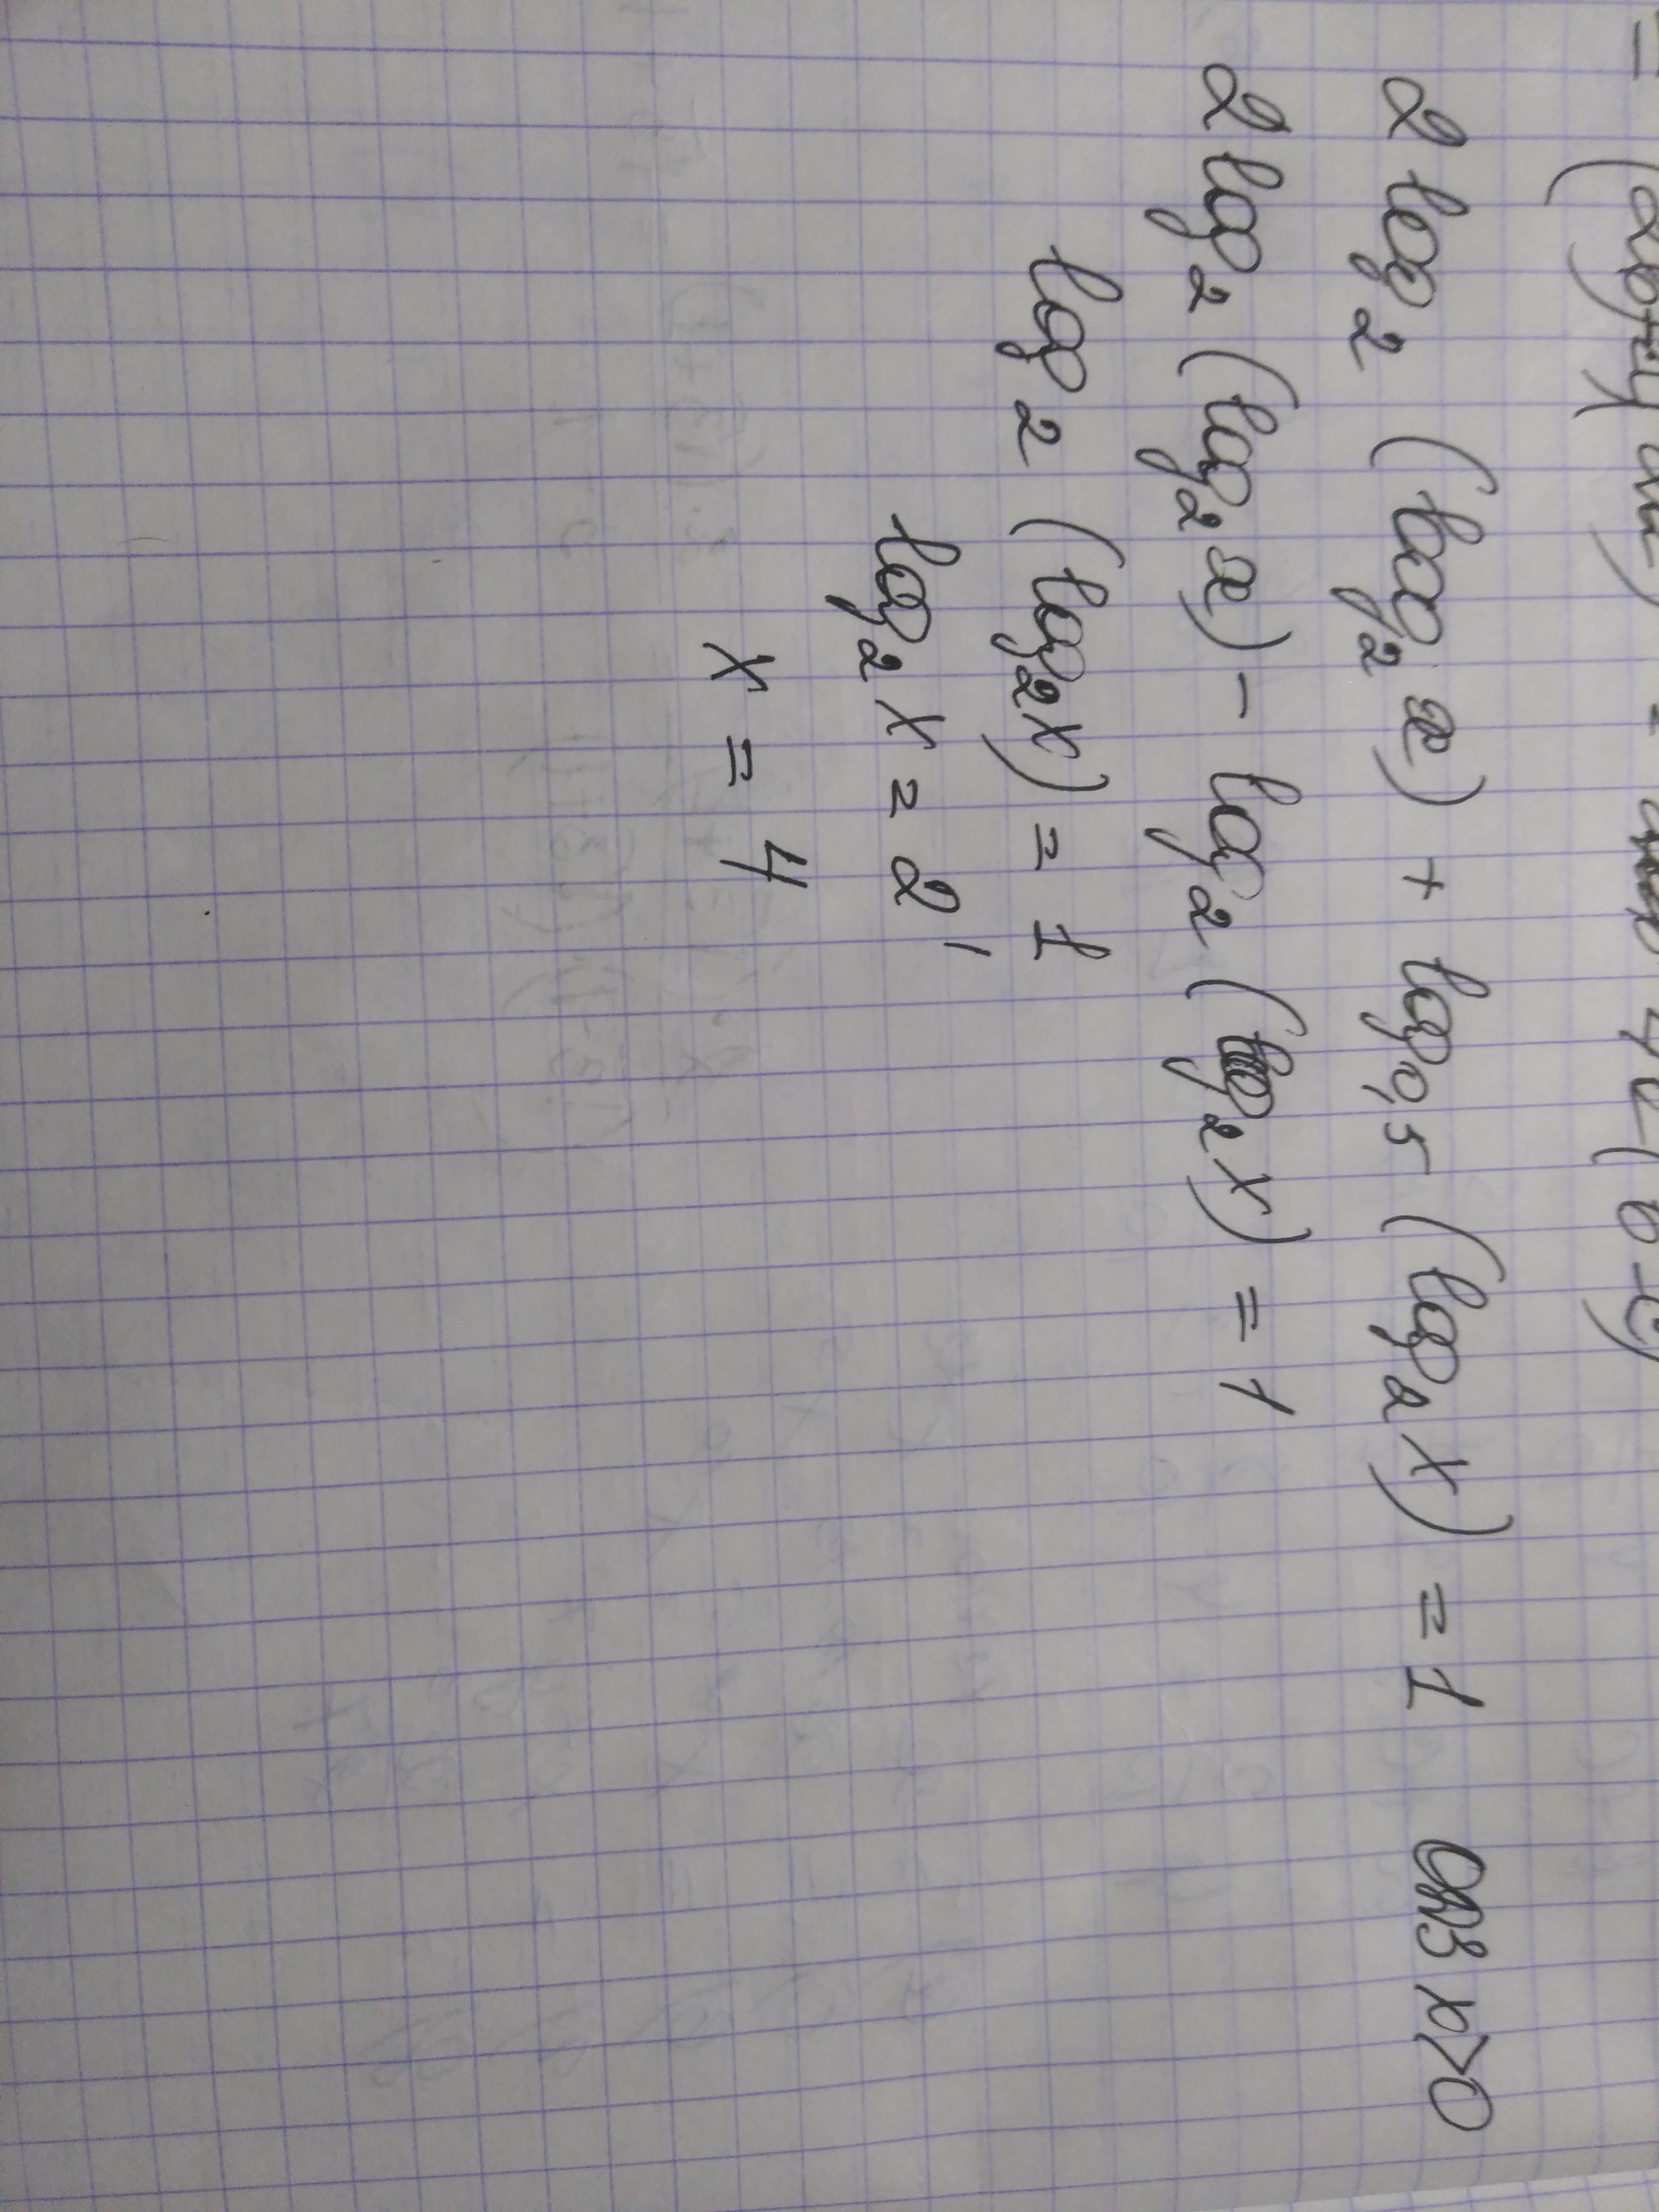 2 log₂ (log₂ x) + log₀,₅ (log₂ x) = 1 ОДЗ x>0
2 log₂ (log₂ x) - log₂ (log₂ x) = 1
log₂ (log₂ x) = 1
log₂ x = 2¹
x = 4